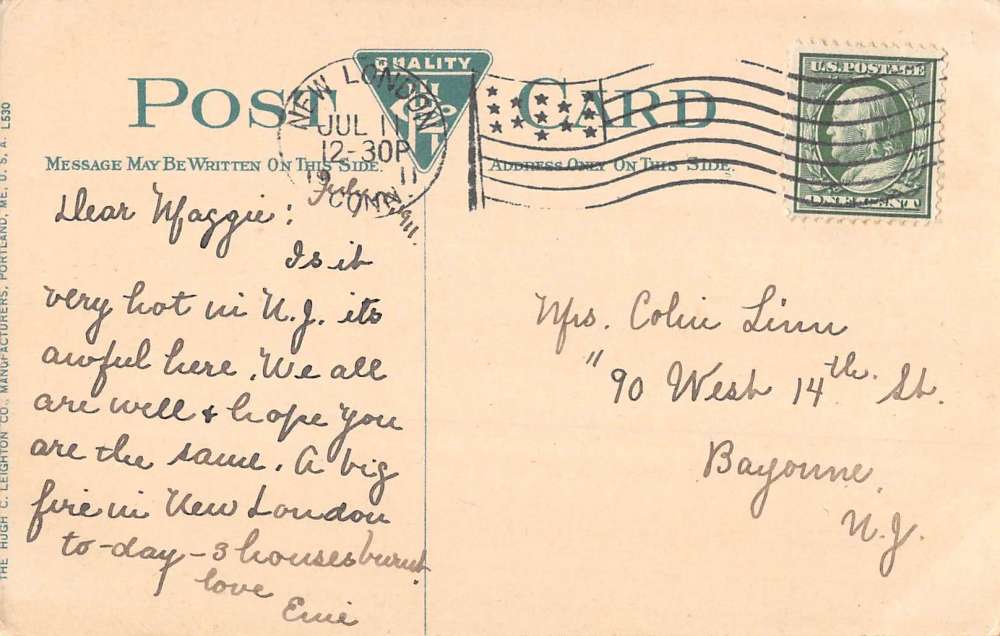 POST CARD
QUALITY
NEW LONDON
JUL 11
12-30P
19 11
CONN.
U.S. POSTAGE
ONE CENT
MESSAGE MAY BE WRITTEN ON THIS SIDE.
ADDRESS ONLY ON THIS SIDE.
THE HUGH C. LEIGHTON CO., MANUFACTURERS, PORTLAND, ME. U. S. A. L530
July 1911.
Dear Maggie:
Is it
very hot in N.J. its
awful here. We all
are well + hope you
are the same. A big
fire in New London
to-day - 3 houses burnt
love
Mrs. Colin Linn
"90 West 14th. St.
Bayonne,
N.J.